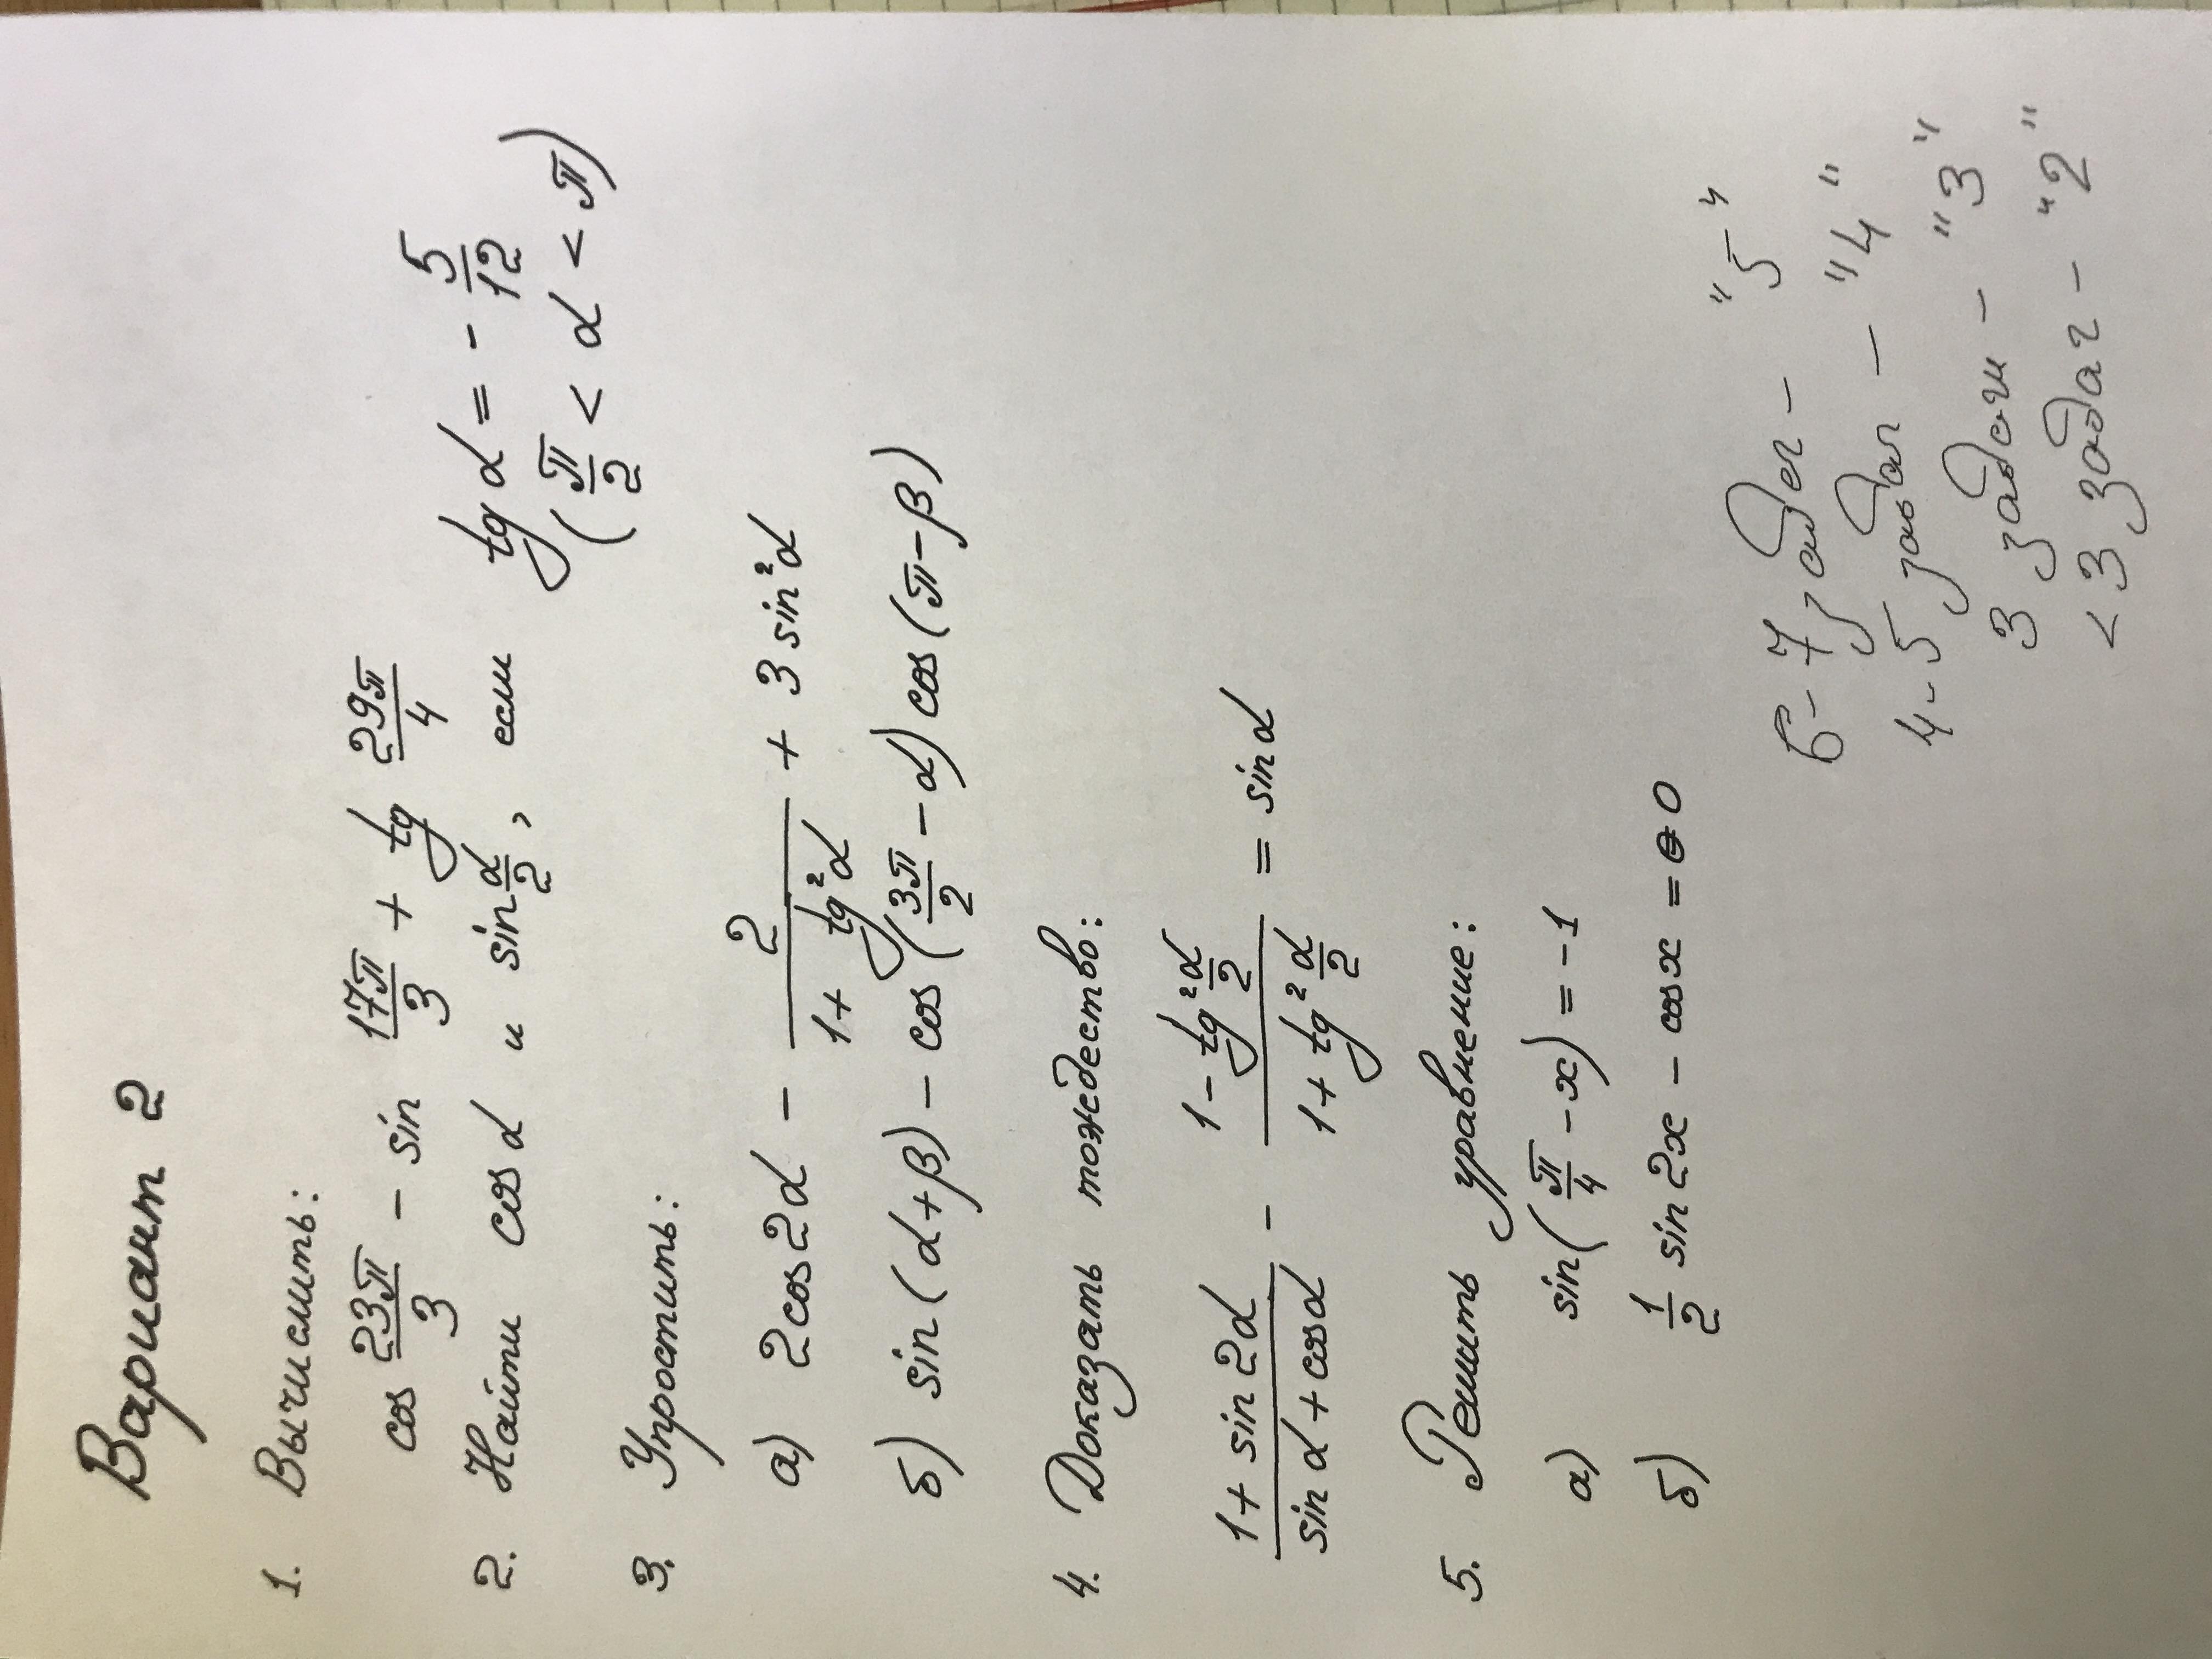 Вариант 2
1. Вычислить:
cos 23π/3 - sin 17π/3 + tg 29π/4
2. Найти cos α и sin α/2, если tg α = - 5/12
(π/2 < α < π)
3. Упростить:
а) 2cos2α - 2/(1 + tg²α) + 3 sin²α
б) sin(α+β) - cos(3π/2 - α) cos(π-β)
4. Доказать тождество:
(1 + sin 2α)/(sin α + cos α) - (1 - tg² α/2)/(1 + tg² α/2) = sin α
5. Решить уравнение:
а) sin(π/4 - x) = -1
б) 1/2 sin 2x - cos x = 0
6-7 задач - "5"
4-5 задач - "4"
3 задачи - "3"
< 3 задач - "2"